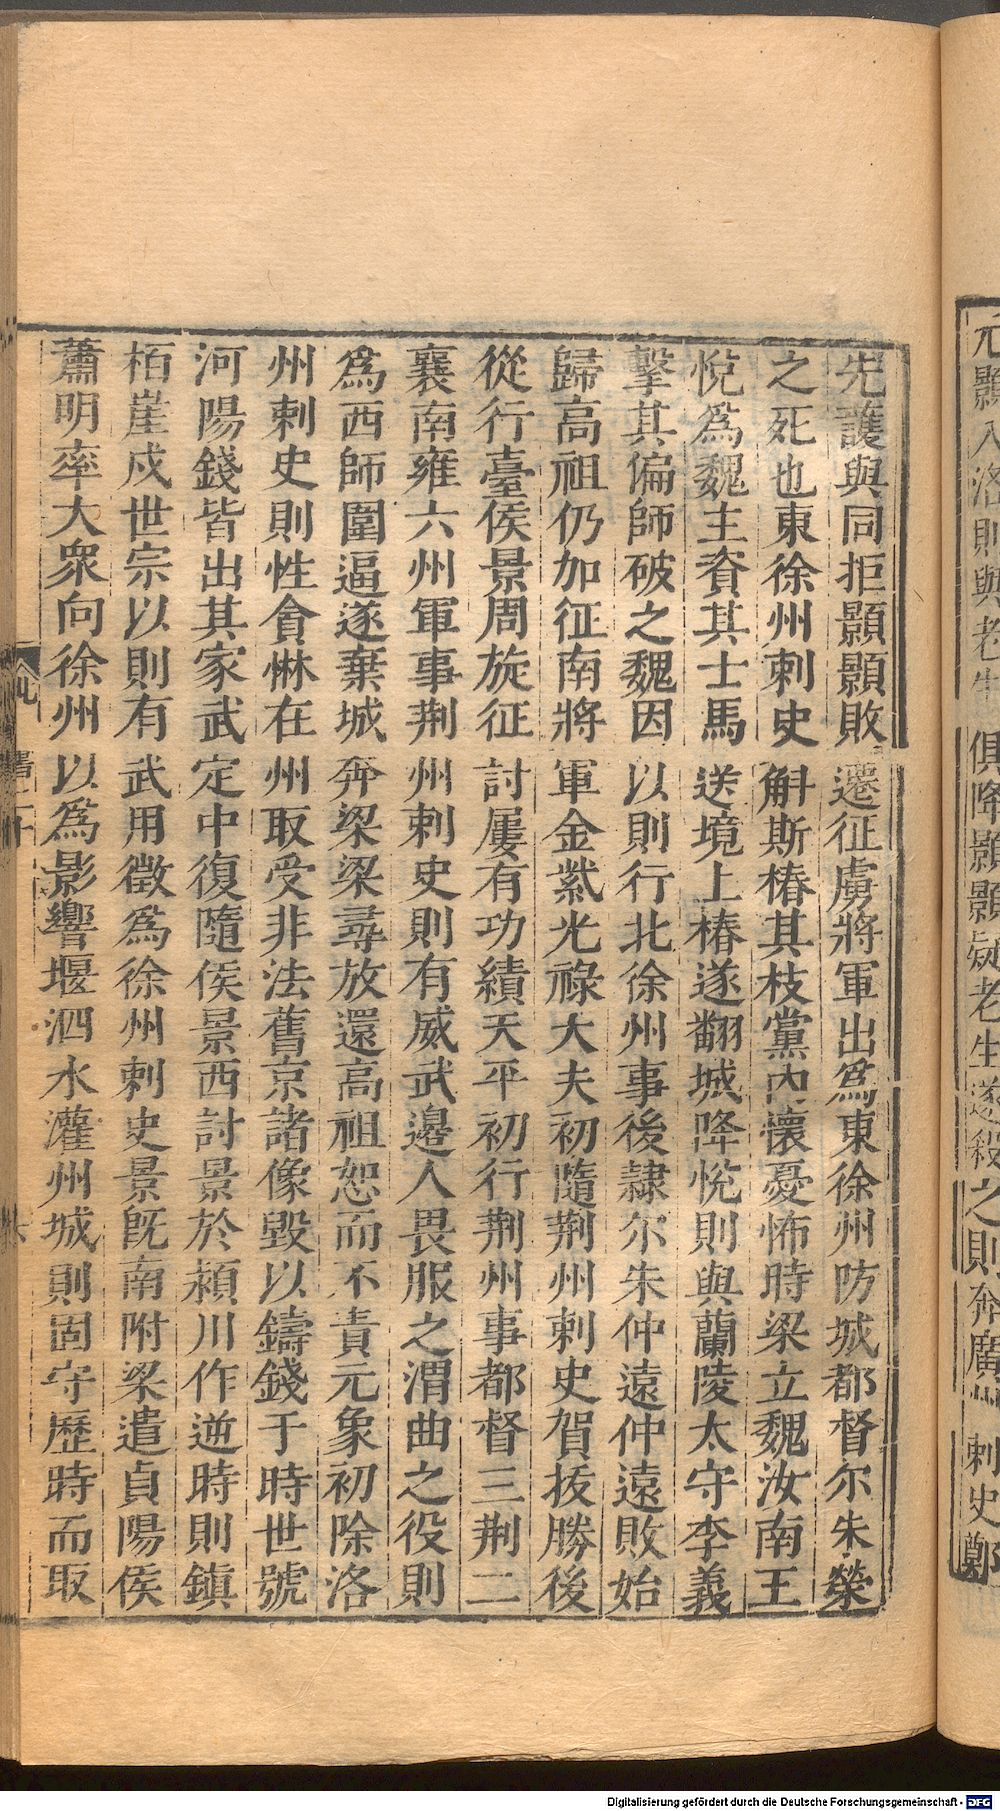 元顥入洛則與老生俱降顥顥疑老生遂殺之則奔廣州刺史鄭
先護與同拒顥顥敗遷征虜將軍出爲東徐州防城都督尔朱榮
之死也東徐州刺史斛斯椿其枝黨內懷憂怖時梁立魏汝南王
悅爲魏主資其士馬送境上椿遂翻城降悅則與蘭陵太守李義
擊其偏師破之魏因以則行北徐州事後隸尔朱仲遠仲遠敗始
歸高祖仍加征南將軍金紫光祿大夫初隨荆州刺史賀拔勝後
從行臺侯景周旋征討屢有功績天平初行荆州事都督三荆二
襄南雍六州軍事荆州刺史則有威武邊人畏服之渭曲之役則
爲西師圍逼遂棄城奔梁梁尋放還高祖恕而不責元象初除洛
州刺史則性貪惏在州取受非法舊京諸像毀以鑄錢于時世號
河陽錢皆出其家武定中復隨侯景西討景於潁川作逆時則鎮
栢崖戍世宗以則有武用徵爲徐州刺史景旣南附梁遣貞陽侯
蕭明率大衆向徐州以爲影響堰泗水灌州城則固守歷時而取
Digitalisierung gefördert durch die Deutsche Forschungsgemeinschaft - DFG